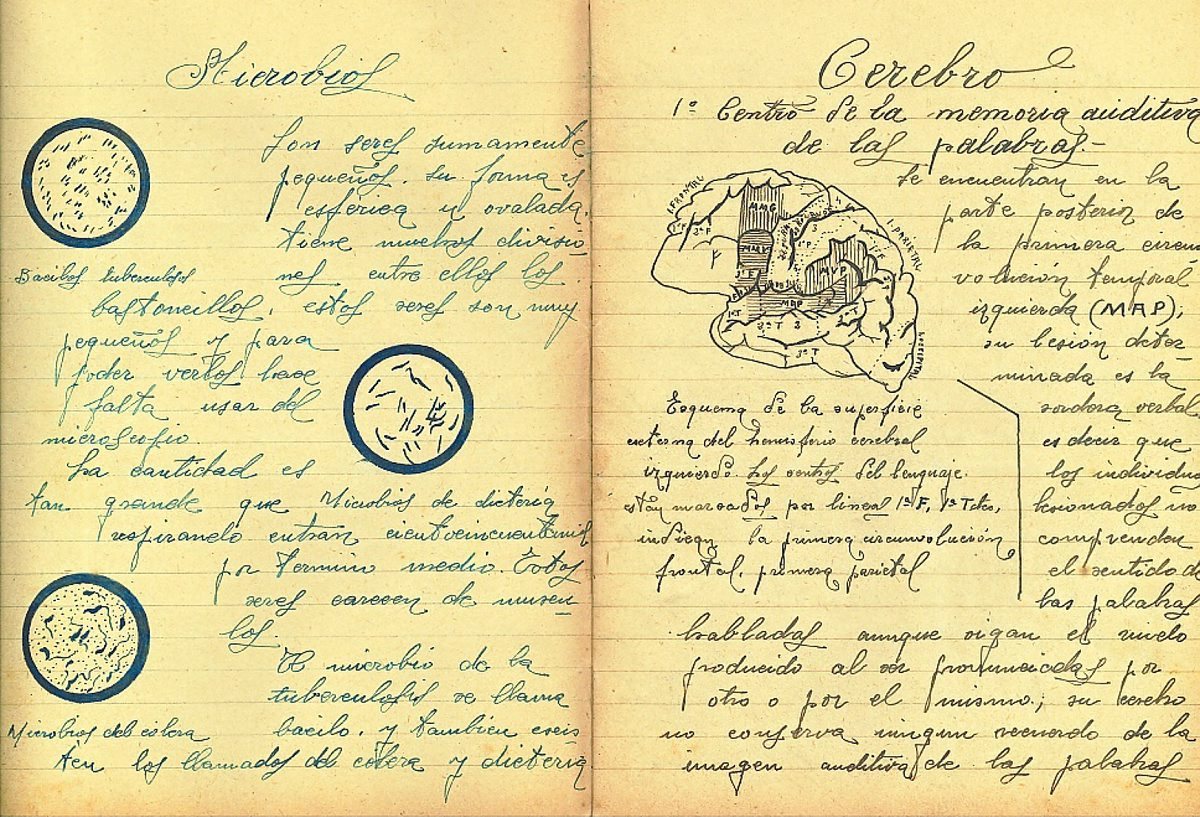 Microbios
Son seres sumamente
pequeños. su forma es
esférica u ovalada.
tiene muchos divisio
nes entre ellos los
Bacilos tuberculosos
bastoncillos, estos seres son muy
pequeños y para
poder verlos hace
falta usar del
microscopio.
La cantidad es
tan grande que
Microbios de dieteria
respirando entran cientocincuentamil
por termino medio. Estos
seres carecen de muscu
los.
El microbio de la
tuberculosis se llama
bacilo. y tambien exsis
Microbios del colera
ten los llamados del colera y dieteria
Cerebro
1º Centro de la memoria auditiva
de las palabras.-
Se encuentran en la
parte posterior de
la primera circun
volución temporal
izquierda (MAP);
su lesión deter
minada es la
sordera verbal
es decir que
los individuos
lesionados no
comprenden
el sentido de
las palabras
habladas aunque oigan el ruido
producido al ser pronunciadas por
otro o por el mismo; su cerebro
no conserva ningun recuerdo de la
imagen auditiva de las palabras
L.FRONTAL
L.PARIETAL
L.OCCIPITAL
MMG
MVP
MAP
F
1ª T
2ª T
3ª T
Esquema de la superficie
externa del hemisferio cerebral
izquierdo. Los centros del lenguaje
estan marcados por lineas 1ª F, 1ª T etc,
indican la primera circunvolución
frontal, primera parietal